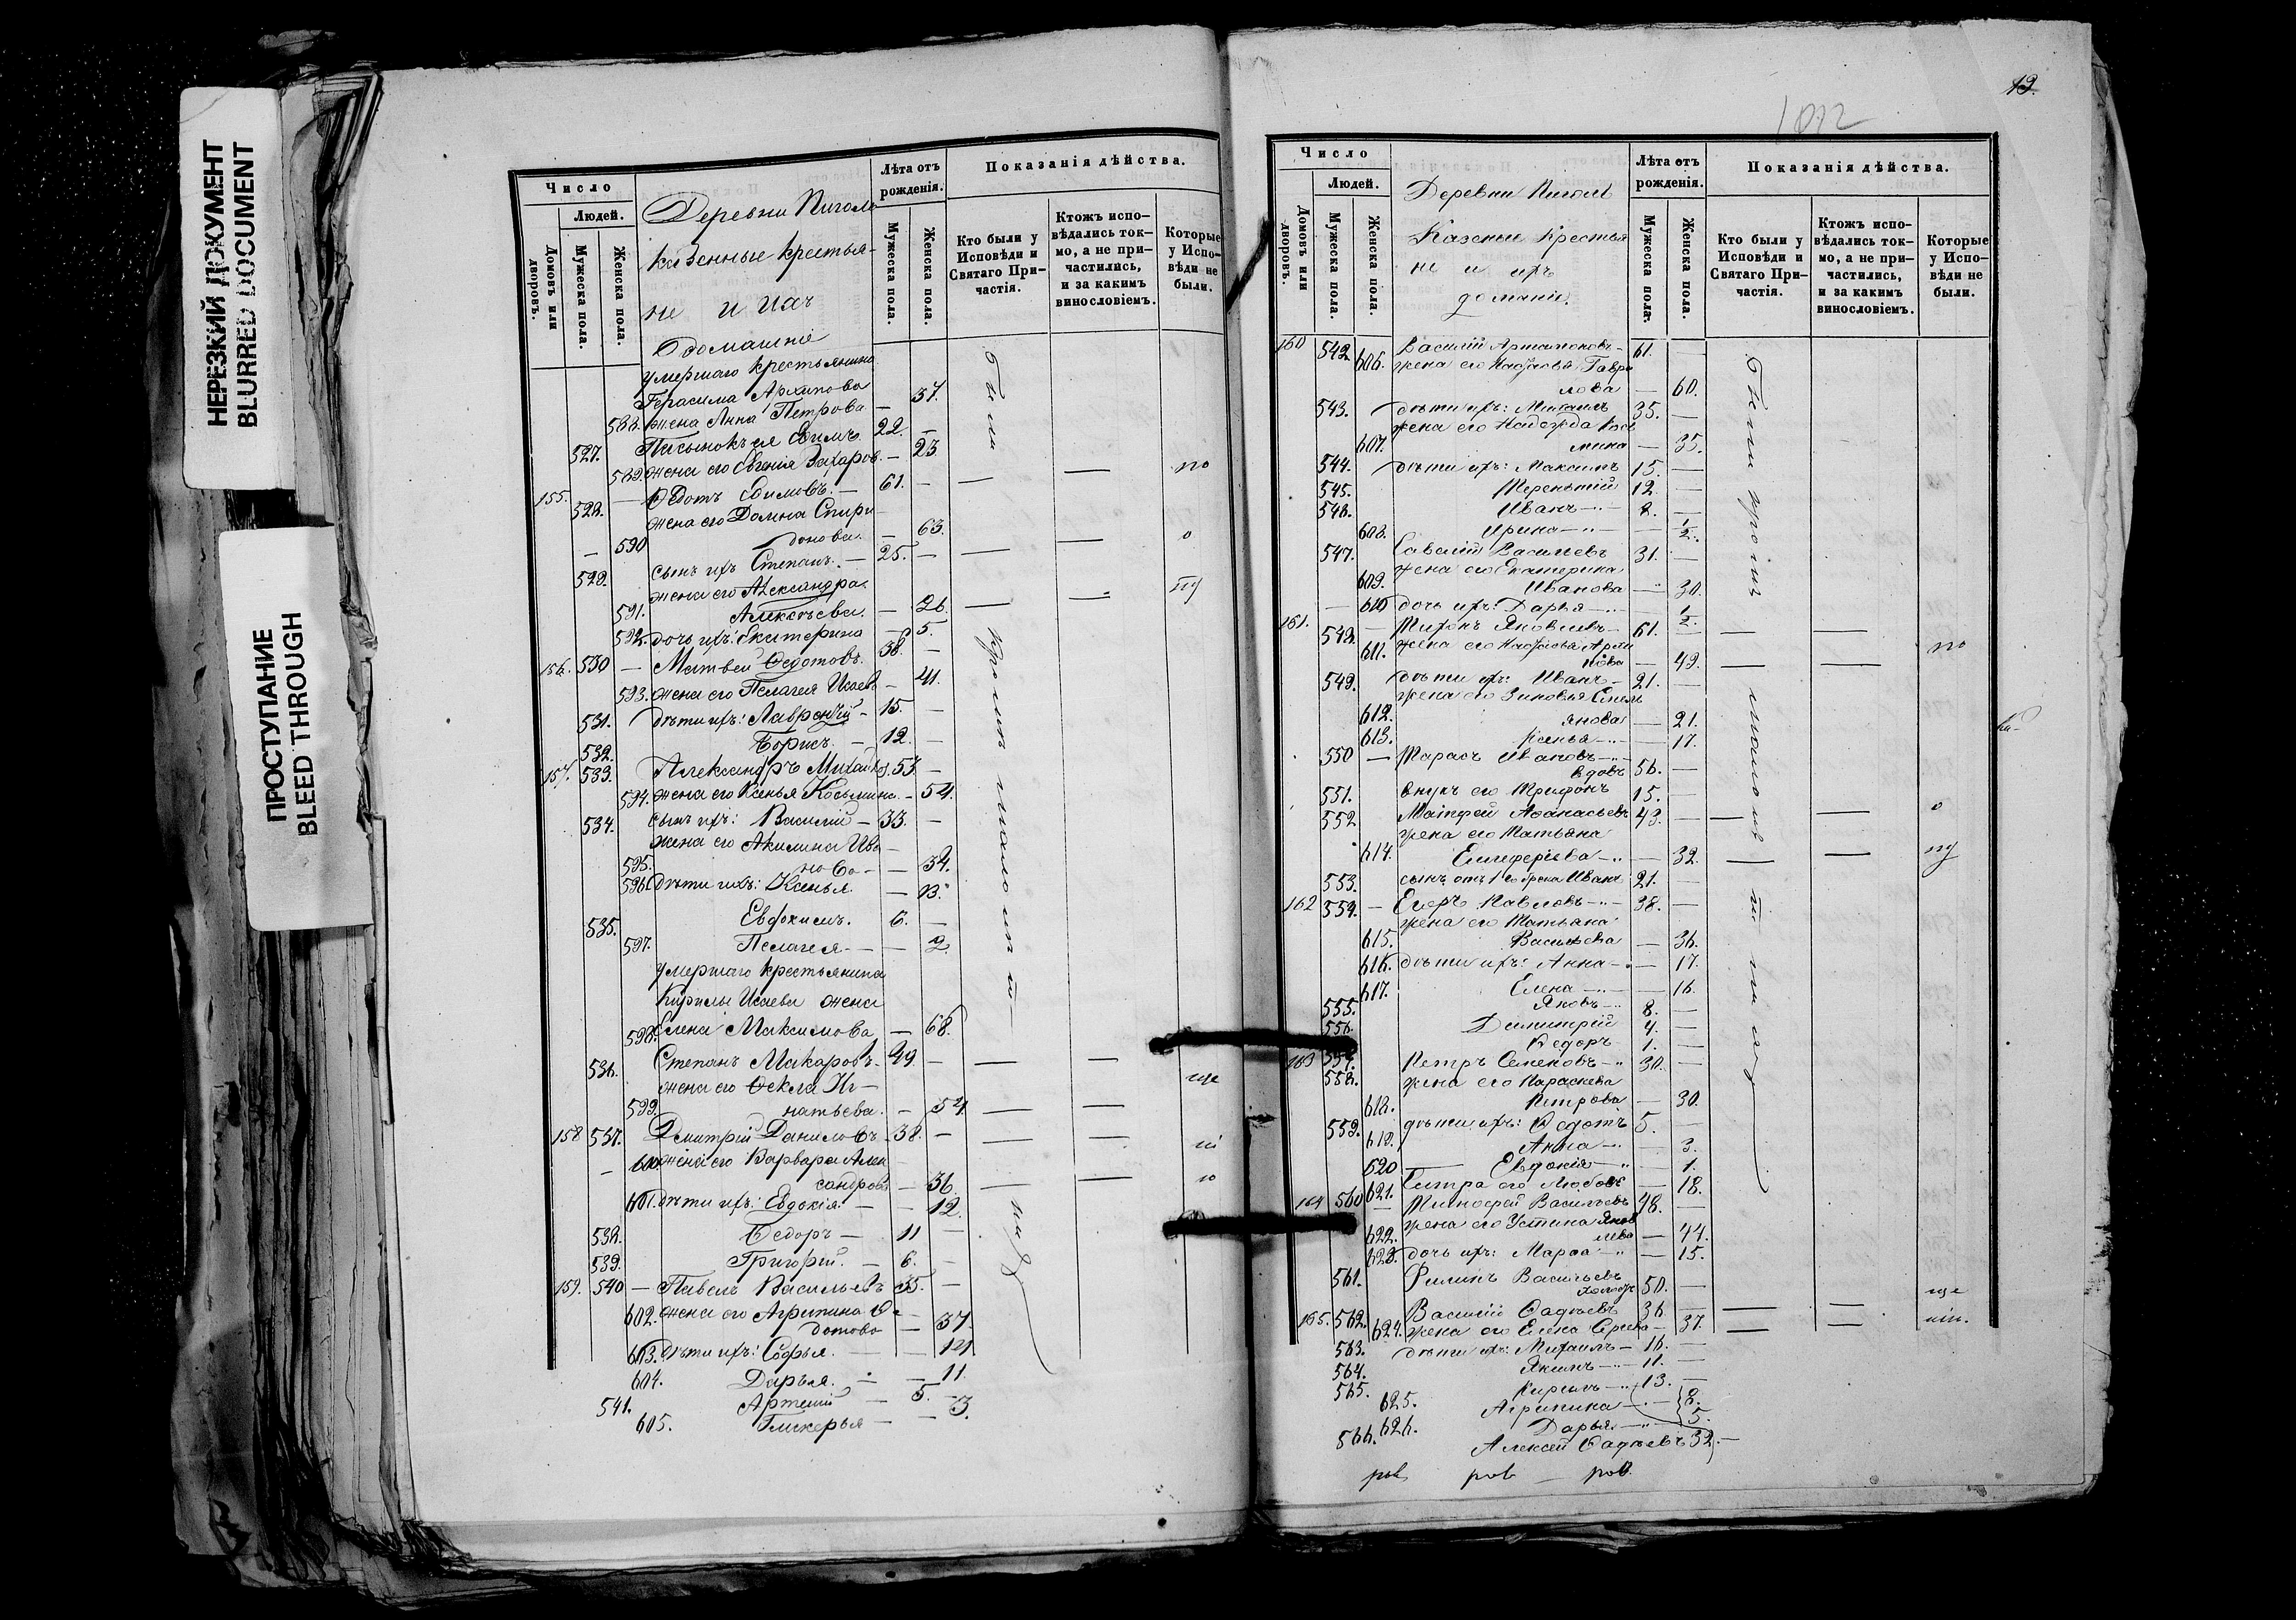 НЕРЕЗКИЙ ДОКУМЕНТ
BLURRED DOCUMENT
ПРОСТУПАНИЕ
BLEED THROUGH
Число
Людей.
Домовъ или дворовъ.
Мужеска пола.
Женска пола.
Деревни Пигола
казенные крестья-
не и ихъ
домашніе
Лѣта отъ рожденія.
Мужеска пола.
Женска пола.
Показанія дѣйства.
Кто были у Исповѣди и Святаго При-частія.
Ктожъ испо-вѣдались ток-мо, а не при-частились, и за какимъ винословіемъ.
Которые у Испо-вѣди не были.
умершаго крестьянина
Герасима Архипова
588. жена Анна Петрова — 57.
527. Пасынокъ ея 22. —
589. жена его Евгенія Захаров. — 23
155. 528. — Ѳедотъ 61. —
жена его Домна Спири-
590 донова. — 63.
529. сынъ ихъ Степанъ. — 25. —
жена его Александра
591. Алексѣева. — 26
592. дочь ихъ: Екатерина — 5.
156. 530 — Матвей Ѳедотовъ. 38 —
593. жена его Пелагея Исаев — 41.
531. дѣти ихъ: Лаврентій — 15. —
532. Борисъ. — 12. —
157. 533. Александръ Михайлов. 53 —
594. жена его Ксенья Косьмина. — 54.
534. сынъ ихъ: Василій — 33. —
жена его Акилина Ива-
595. нова — 34.
596. дѣти ихъ: Ксенья — 13.
535. Евдокимъ. 6. —
597. Пелагея — — 2.
умершаго крестьянина
Кирилы Исаева жена
598. Елена Максимова — 68.
536. Степанъ Макаровъ. 49. —
жена его Ѳекла Иг-
599. натьева. — 54
158 537. Дмитрій Даниловъ — 38. —
600 жена его Варвара Алек
сандров — 36
601. дѣти ихъ: Евдокія — — 12.
538. Ѳедоръ — 11
539. Григорій. — 6.
159. 540 — Павелъ Васильевъ 35. —
602. жена его Агрипина Ѳе
дотова — 37.
603. дѣти ихъ: Софья. — 14.
604. Дарья. — 11
541. Артемій — 5.
605. Гликерья — — 3.
1012
Число
Людей.
Домовъ или дворовъ.
Мужеска пола.
Женска пола.
Деревни Пигол
Казеные крестья
не и ихъ
домашніе
Лѣта отъ рожденія.
Мужеска пола.
Женска пола.
Показанія дѣйства.
Кто были у Исповѣди и Святаго При-частія.
Ктожъ испо-вѣдались ток-мо, а не при-частились, и за какимъ винословіемъ.
Которые у Испо-вѣди не были.
160 542 Василій Артамоновъ — 61. —
606. жена его Настасья Гаври
лова — 60.
543. дѣти ихъ: Михаилъ 35. —
жена его Надежда Кось
607. мина — 35.
544. дѣти ихъ: Максимъ 15. —
545. Терентій 12. —
546. Иванъ 8. —
608. Ирина — 1/2.
547. Савелій Васильевъ 31. —
жена его Екатерина
609. Иванова — 30.
610 дочь ихъ: Дарья — 1/2.
161. 548. Тихонъ Яковлевъ 61. —
611. жена его Настасья
— 49.
549. дѣти ихъ: Иванъ — 21. —
жена его Зиновья Емель
612. янова — 21.
613. Ксенья — 17.
550 — Тарасъ Ивановъ
вдовъ 56. —
551. внукъ его Трифонъ 15. —
552 Матфей Аѳанасьевъ 43. —
жена его Татьяна
614. Елиферіева — 32.
553. сынъ отъ 1го брака Иванъ 21. —
162 554. — Егоръ Павловъ 38. —
жена его Татьяна
615. Васильева — 36.
616. дѣти ихъ: Анна — 17.
617. Елена — 16.
555. Яковъ 8. —
556. Димитрій 4. —
557. Ѳедоръ 1. —
163 558. Петръ Семеновъ 30. —
жена его Параскева
618. Петрова — 30.
559. дѣти ихъ: Ѳедотъ 5. —
619. Анна — 3.
620 Евдокія — 1.
621. Сестра его Любовь — 18.
164 560 — Тимоѳей Васильевъ 48. —
622. жена его Устина Яков
лева — 44.
623. дочь ихъ: Марѳа — 15.
561. Филипъ Васильевъ
холостъ 50. —
165. 562. Василій Ѳадѣевъ 36 —
624. жена его Елена — 37.
563. дѣти ихъ: Михаилъ — 16. —
564. Якимъ — 11. —
565. 13. —
625. Агрипина — 8.
626. Дарья — 5.
566. Алексей Ѳадѣевъ 32. —